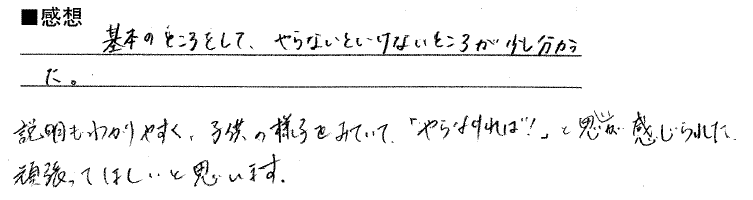 ■感想
基本のところをして、やらないといけないところが少し分かっ
た。
説明もわかりやすく、子供の様子をみていて、「やらなければ!」と思いが感じられた。
頑張ってほしいと思います。